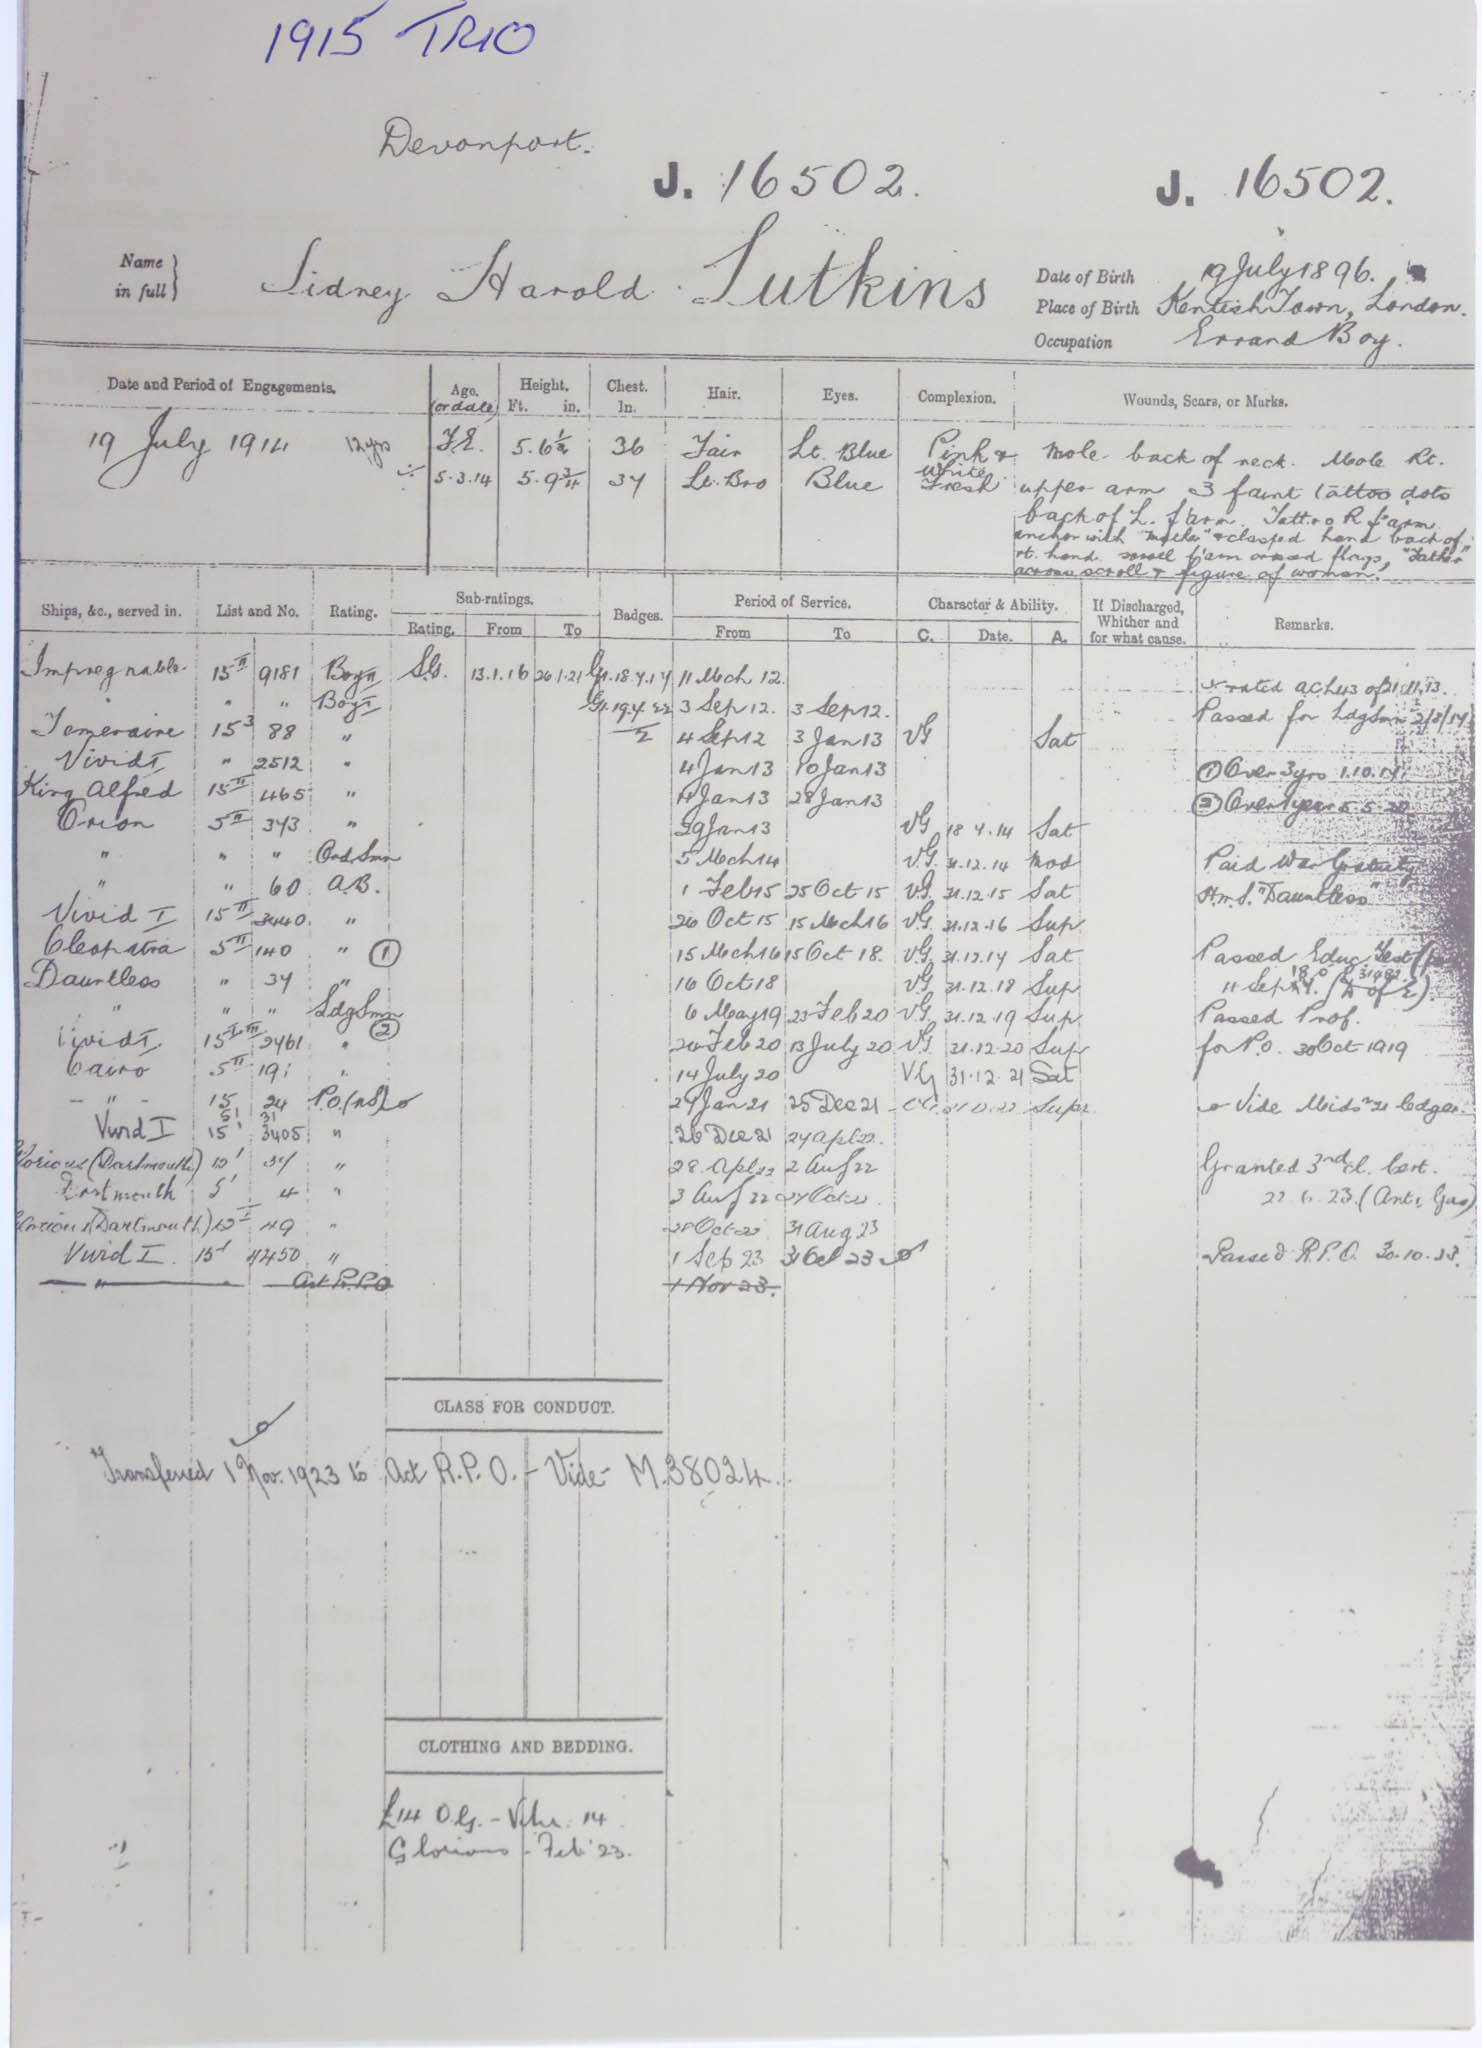 1915 TRIO
Devonport.
J. 16502. J. 16502.
Name in full } Sidney Harold Sutkins
Date of Birth 19 July 1896.
Place of Birth Kentish Town, London.
Occupation Errand Boy.
Date and Period of Engagements. Age. (or date) Height. Ft. in. Chest. In. Hair. Eyes. Complexion. Wounds, Scars, or Marks.
19 July 1914 12 yrs 5. 6½ 36 Fair Lt. Blue Pink & White Mole back of neck. Mole Rt.
5.3.14 5. 9¾ 37 Lt. Bro Blue Fresh upper arm 3 faint tattoo dots
back of L. f'arm. Tattoo R f'arm
anchor with "Mother" & clasped hand back of
rt. hand scroll f'arm crossed flags, "Father"
across scroll & figure of woman.
Ships, &c., served in. List and No. Rating. Sub-ratings. Rating. From To Badges. Period of Service. From To Character & Ability. C. Date. A. If Discharged, Whither and for what cause. Remarks.
Impregnable 15 II 9181 Boy II S.G. 13.1.16 26.1.21 11 Mch 12
" " Boy I 3 Sep 12. 3 Sep 12.
Passed for Ldg Smn 2/8/17
Temeraire 15 3 88 " 4 Sep 12 3 Jan 13 VG Sat
Vivid I " 2512 " 4 Jan 13 10 Jan 13
① Over 3 yrs 1.10.17
King Alfred 15 II 465 " 11 Jan 13 28 Jan 13
② Over 1 year 5.5.20
Orion 5 II 343 " 29 Jan 13 VG 18.7.14 Sat
" " " Ord Smn 5 Mch 14 V.G. 31.12.14 Mod Paid War Gratuity
" " 60 A.B. 1 Feb 15 25 Oct 15 V.G. 31.12.15 Sat H.M.S. "Dauntless"
Vivid I 15 II 3440 " 26 Oct 15 15 Mch 16 V.G. 31.12.16 Sup
Cleopatra 5 II 140 " ① 15 Mch 16 15 Oct 18. V.G. 31.12.17 Sat Passed Educ. Test
Dauntless " 34 " 16 Oct 18 V.G. 31.12.18 Sup 11 Sep (D of E).
" " " Ldg Smn 6 May 19 23 Feb 20 V.G. 31.12.19 Sup Passed Prof.
Vivid I. 2461 " ② 24 Feb 20 13 July 20 V.G. 31.12.20 Sup for P.O. 30 Oct 1919
Cairo 5 II 191 " 14 July 20 V.G 31.12.21 Sat
- " - 15 24 P.O. (NS) 27 Jan 21 25 Dec 21 Supr Vide Mids 21 ledger
Vivid I 15 I 3405 " 26 Dec 21 27 Apl 22.
Glorious (Dartmouth) 12 I 34 " 28. Apl 22 2 Aug 22 Granted 3rd cl. Cert.
Dartmouth 5 I 4 " 3 Aug 22 27 Oct 22 22.6.23. (Anti Gas)
Glorious (Dartmouth) 12 I 49 " 28 Oct 22 31 Aug 23
Vivid I 15 I 4450 " 1 Sep 23 31 Oct 23 Passed R.P.O. 30.10.23.
" Act R.P.O 1 Nov 23.
CLASS FOR CONDUCT.
Transferred 1 Nov. 1923 to Act R.P.O. - Vide - M.38024.
CLOTHING AND BEDDING.
Glorious - Feb 23.